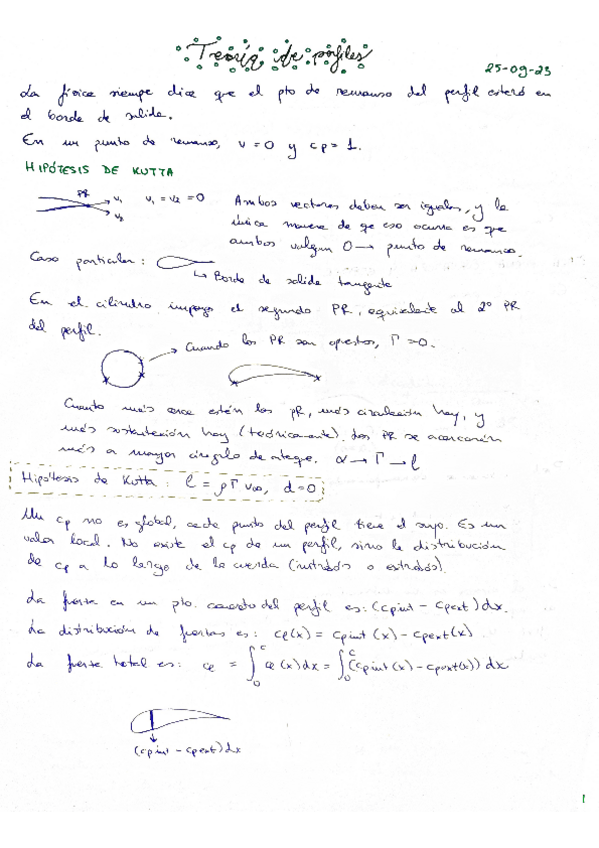 Teoría de perfiles
25-09-23
La física siempre dice que el pto de remanso del perfil estará en
el borde de salida.
En un punto de remanso, v = 0 y cp = 1.
HIPÓTESIS DE KUTTA
PR
v₁ v₁ = v₂ = 0
v₂
Ambos vectores deben ser iguales, y la
única manera de qe eso ocurra es que
ambos valgan 0 → punto de remanso.
Caso particular:
↳ Borde de salida tangente
En el cilindro impongo el segundo PR, equivalente al 2º PR
del perfil.
→ Cuando los PR son opuestos, Γ = 0.
Cuanto más cerca estén los PR, más circulación hay, y
más sustentación hay (teóricamente). Los PR se acercarán
más a mayor ángulo de ataque. α → Γ → l
Hipótesis de Kutta: l = ρ Γ v∞, d = 0
Un cp no es global, cada punto del perfil tiene el suyo. Es un
valor local. No existe el cp de un perfil, sino la distribución
de cp a lo largo de la cuerda (intradós o extradós).
La fuerza en un pto. concreto del perfil es: (cpint - cpext) dx.
La distribución de fuerzas es: cl(x) = cpint (x) - cpext(x)
La fuerza total es: cl = ∫₀ᶜ cl (x) dx = ∫₀ᶜ (cpint (x) - cpext(x)) dx
(cpint - cpext) dx
1